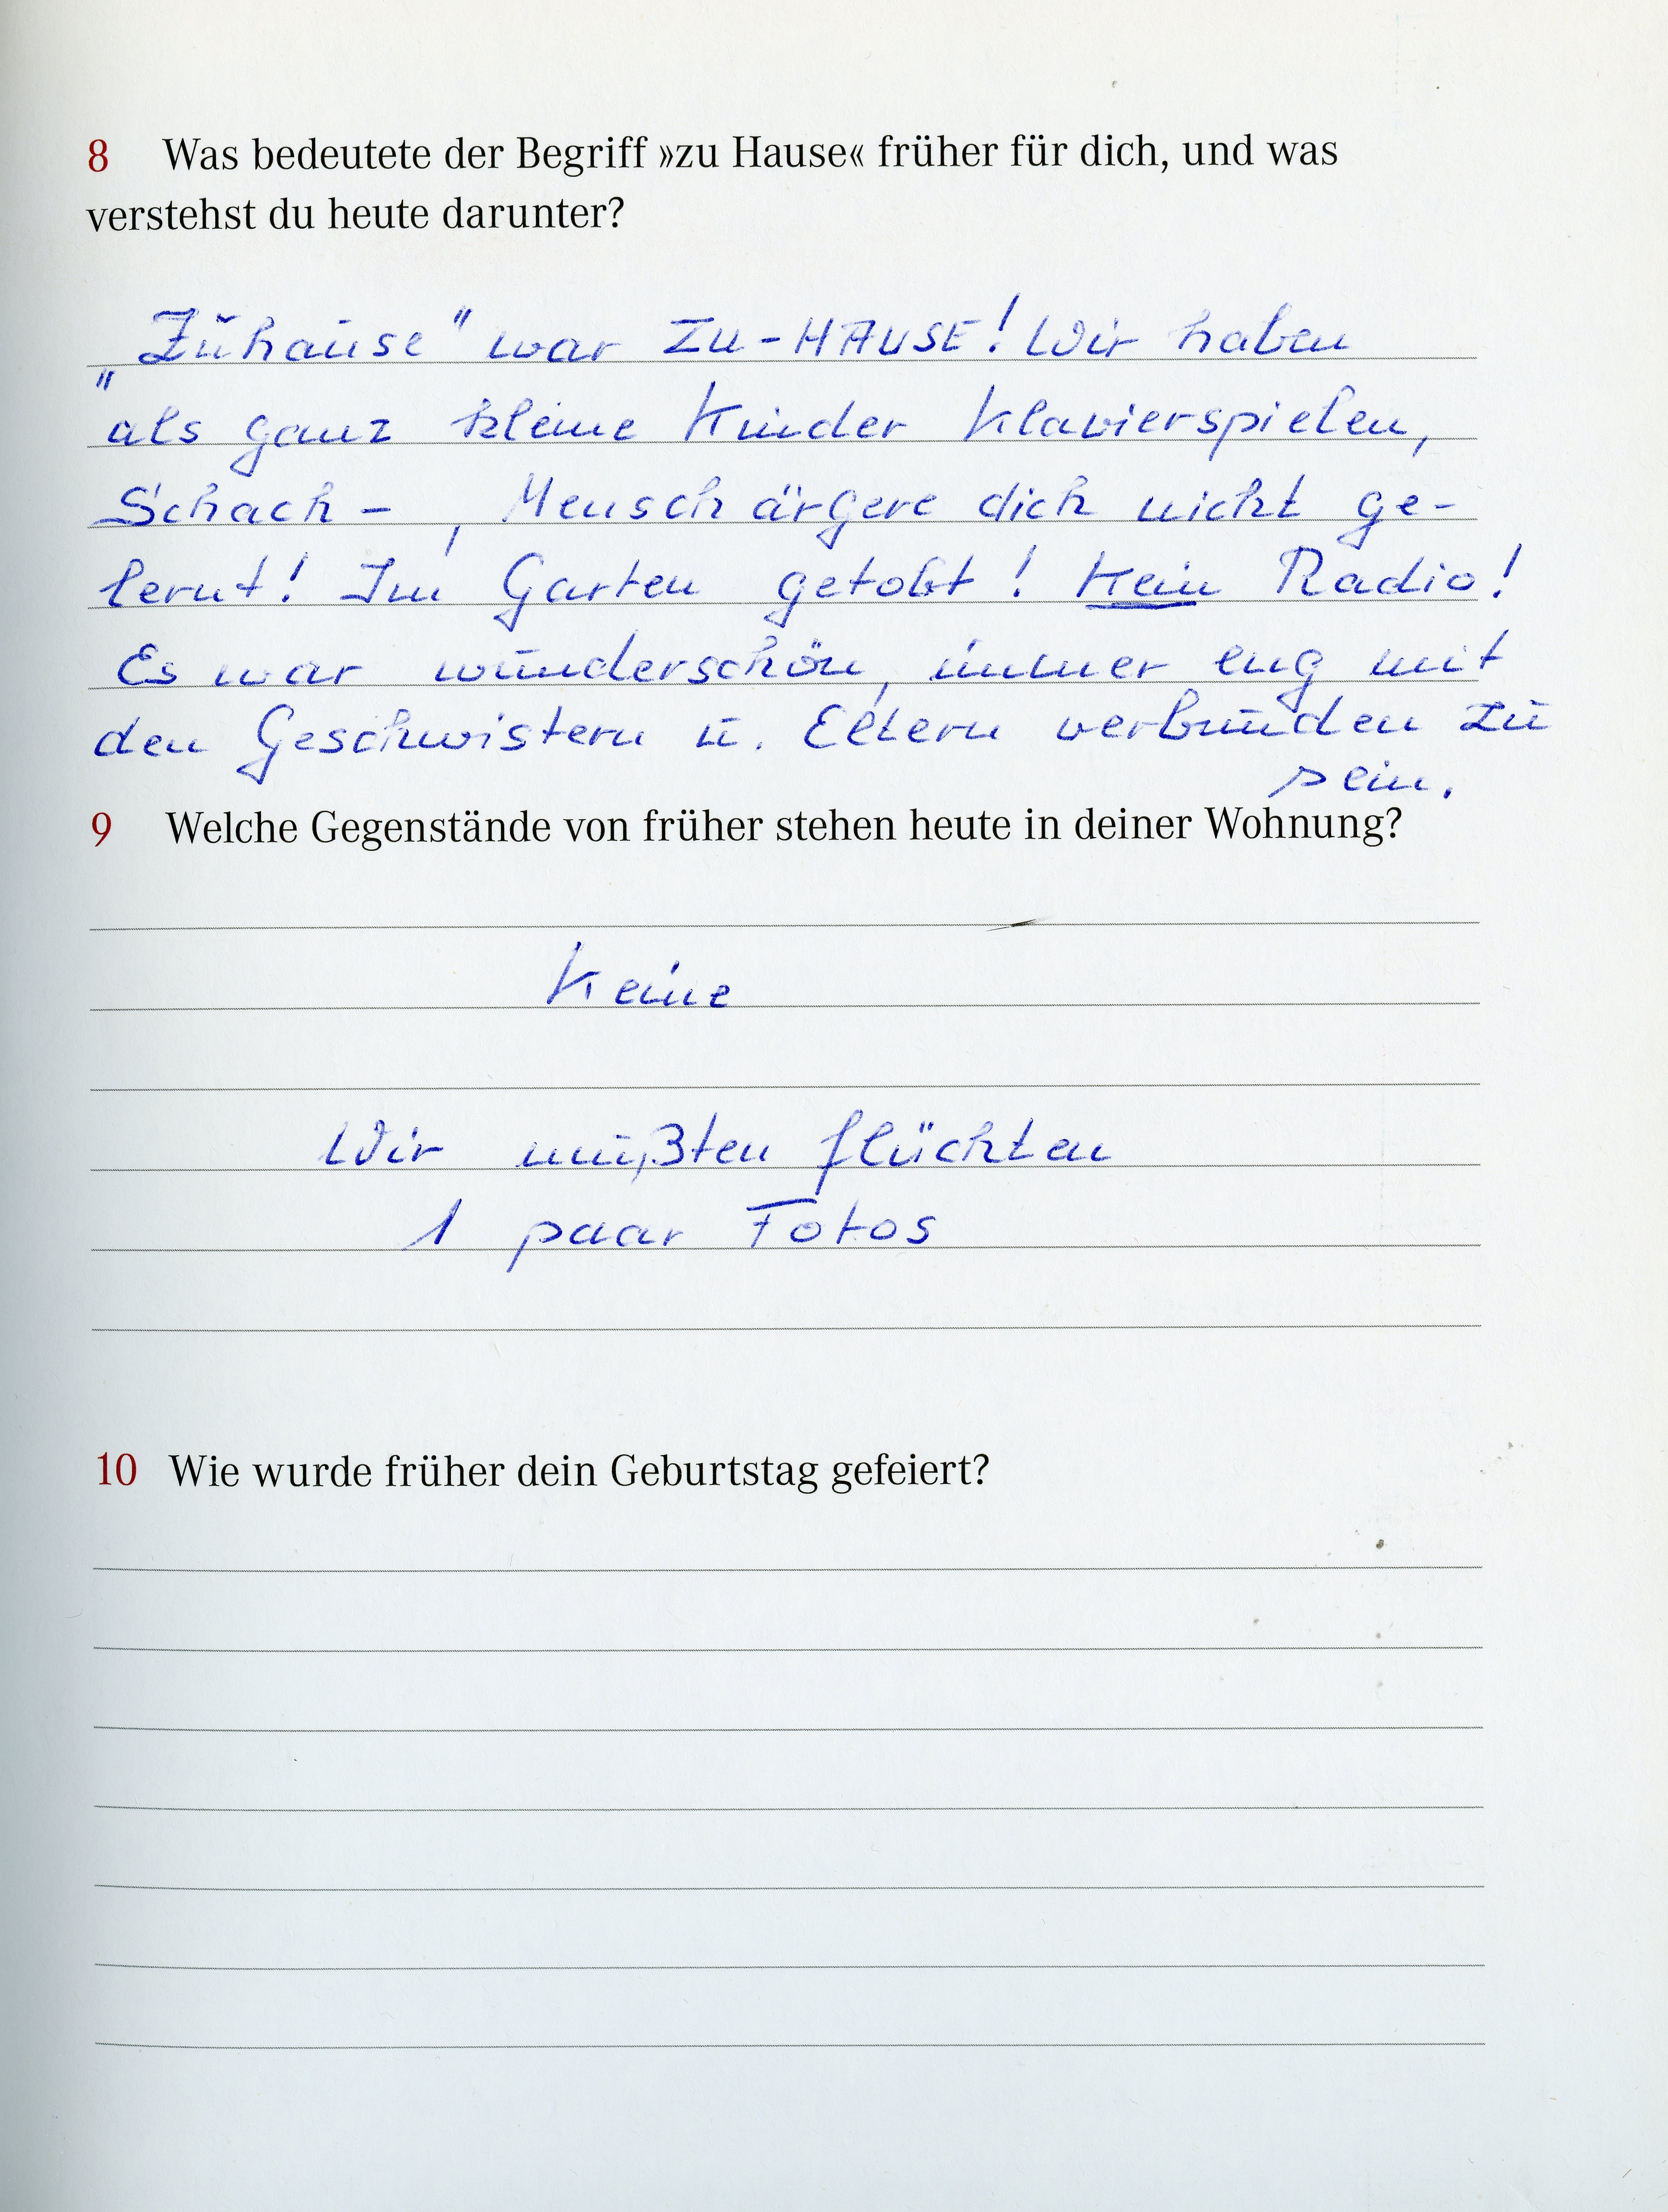 8 Was bedeutete der Begriff »zu Hause« früher für dich, und was
verstehst du heute darunter?
„Zuhause" war ZU-HAUSE! Wir haben
als ganz kleine Kinder Klavierspielen,
Schach-, Mensch ärgere dich nicht ge-
lernt! Im Garten getobt! Kein Radio!
Es war wunderschön, immer eng mit
den Geschwistern u. Eltern verbunden zu
sein.
9 Welche Gegenstände von früher stehen heute in deiner Wohnung?
Keine
Wir mußten flüchten
1 paar Fotos
10 Wie wurde früher dein Geburtstag gefeiert?